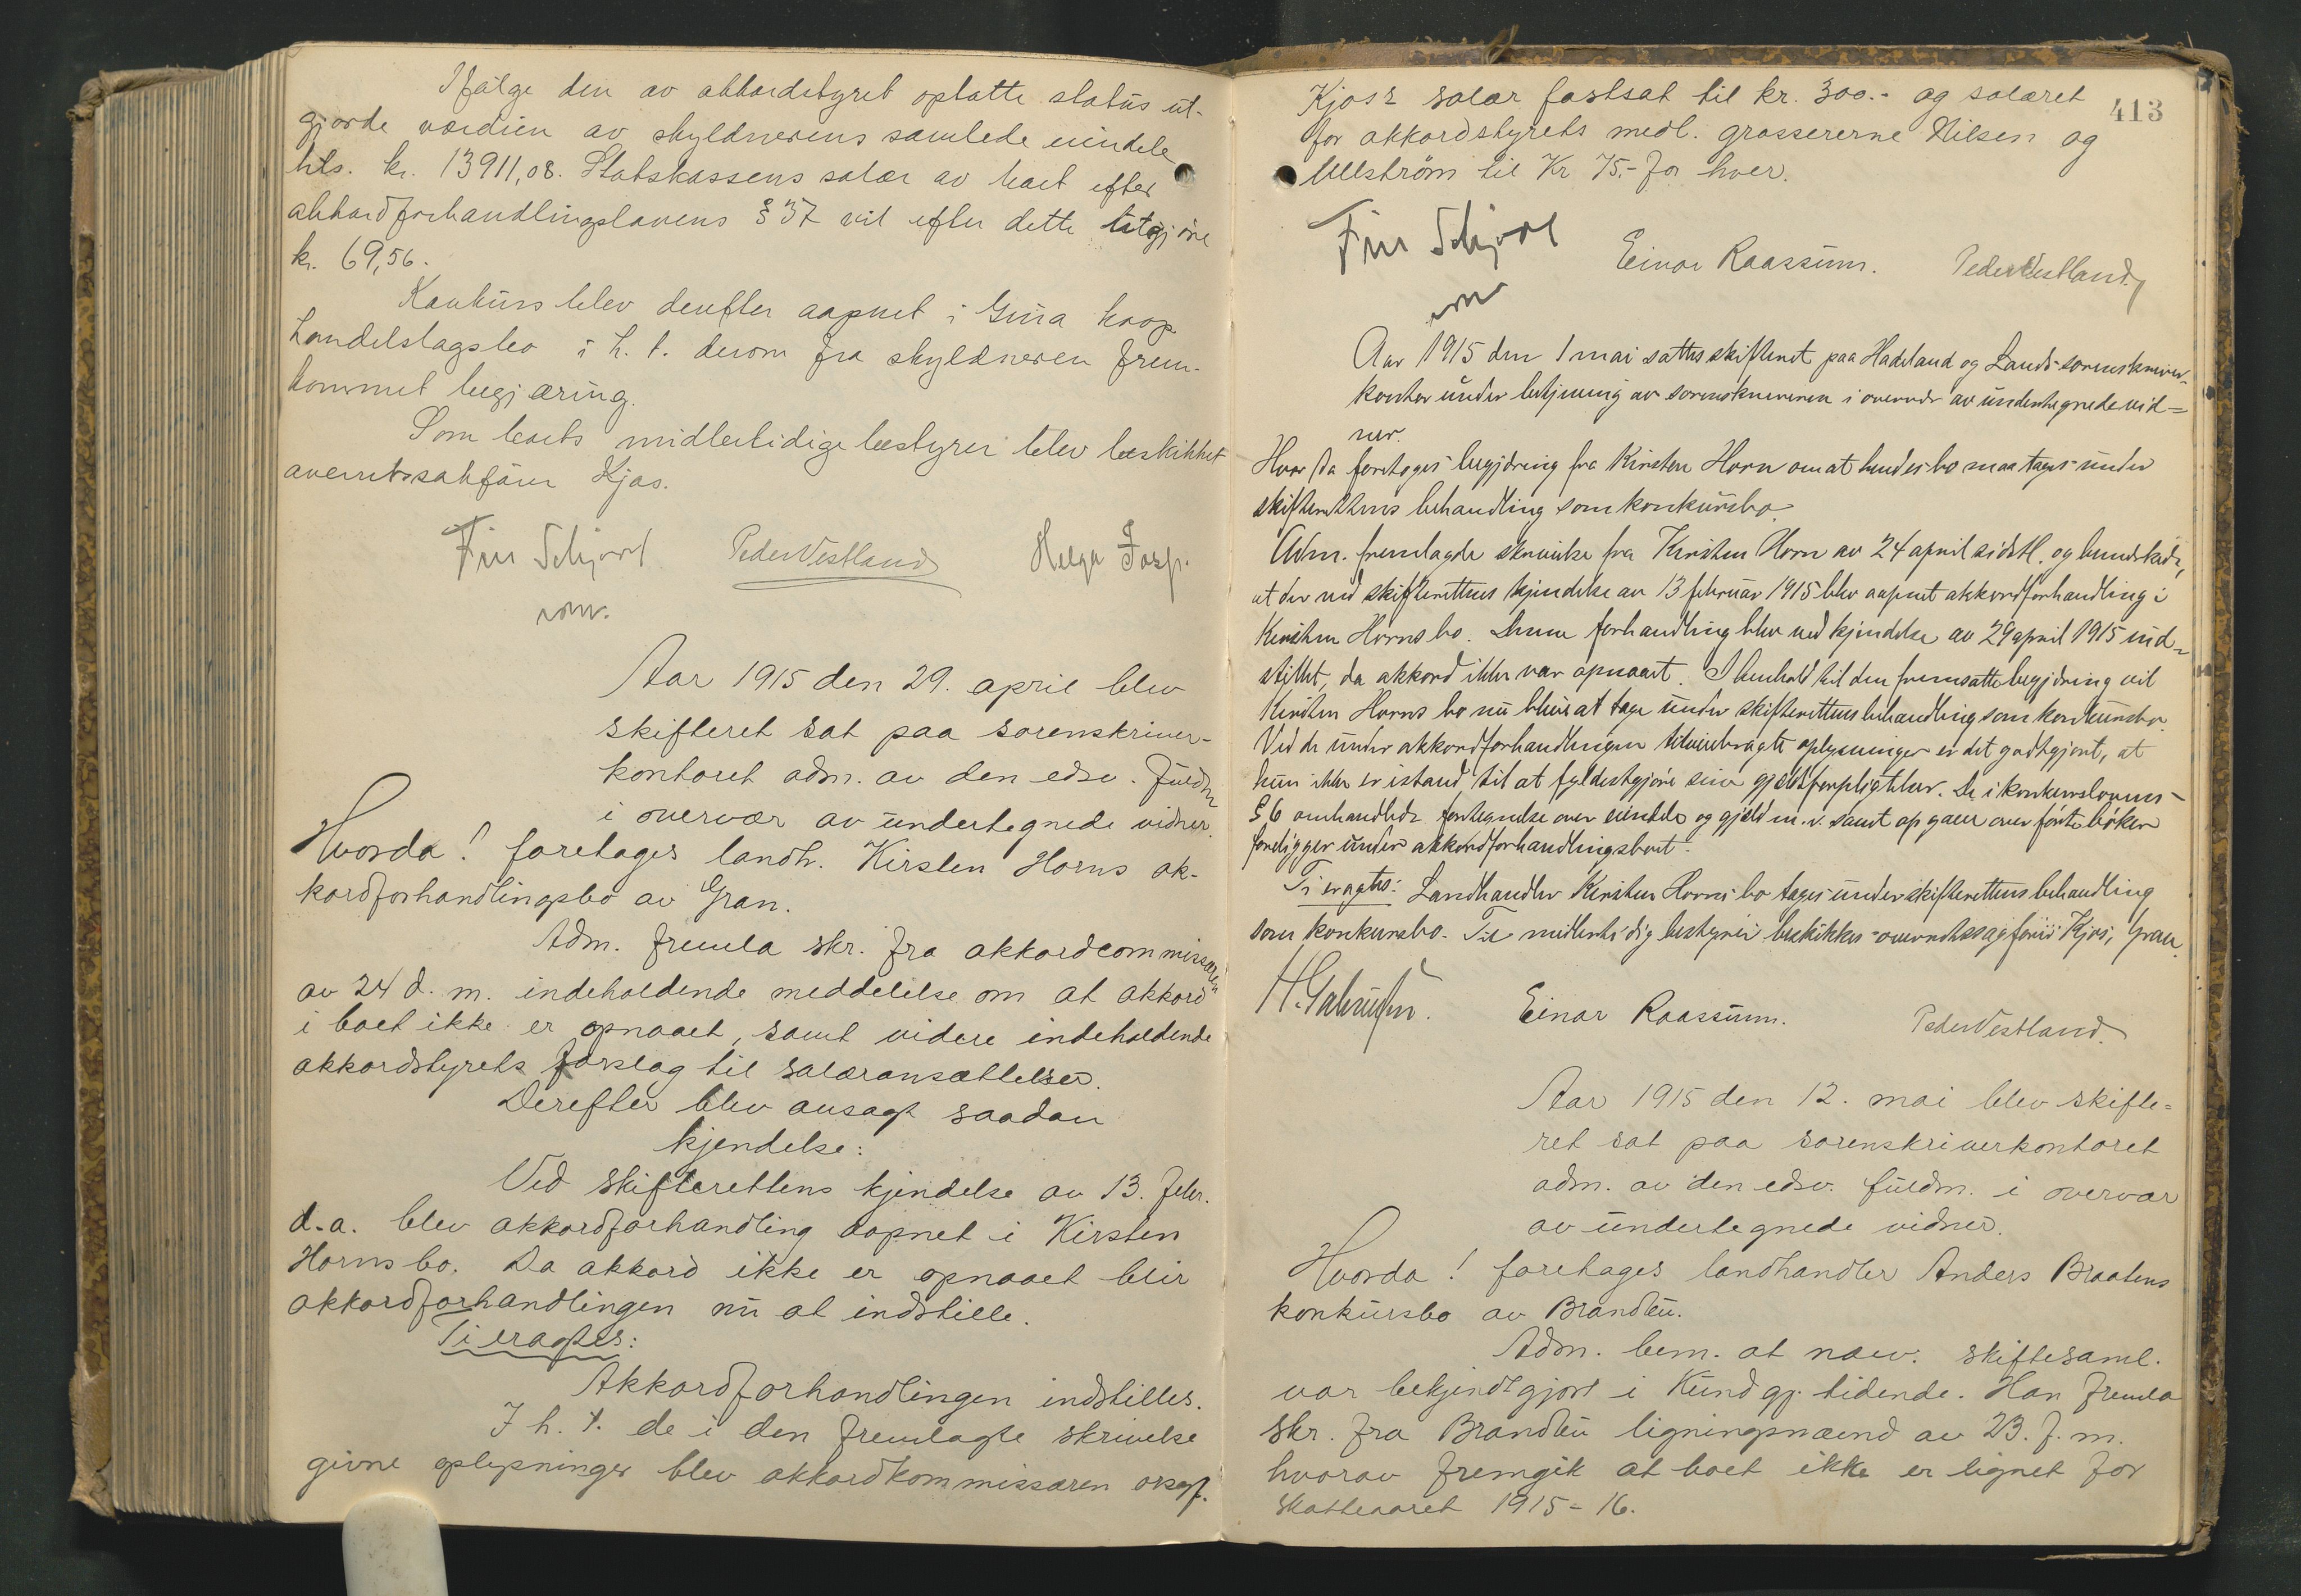 Ifølge den av akkordstyret optatte status ut-
gjorde værdien av skyldnerens samlede eiendele
hts. kr. 13911,08. Statskassens salær av boet efter
akkordforhandlingslovens § 37 vil efter dette utgjøre
kr. 69,56.
Konkurs blev derefter aapnet i Gina koop
handelslagsbo i h. t. derom fra skyldneren frem-
kommet begjæring.
Som boets midlertidige bestyrer blev beskikket
overretssakfører Kjos.
Finn Schjøel Peder Vestland Helge Josp.
Aar 1915 den 29. april blev
skifteret sat paa sorenskriver-
kontoret adm. av den edsv. fuldm
i overvær av undertegnede vidner.
Hvorda! foretages landh. Kirsten Horns ak-
kordforhandlingsbo av Gran.
Adm. fremla skr. fra akkordcommissæren
av 24 d. m. indeholdende meddelelse om at akkord
i boet ikke er opnaaet, samt videre indeholdende
akkordstyrets forslag til salæransættelser.
Derefter blev avsagt saadan
kjendelse:
Ved skifterettens kjendelse av 13. febr.
d.a. blev akkordforhandling aapnet i Kirsten
Horns bo. Da akkord ikke er opnaaet blir
akkordforhandlingen nu at indstille.
Ti eragtes:
Akkordforhandlingen indstilles.
I h. t. de i den fremlagte skrivelse
givne oplysninger blev akkordkommissæren orsagf.
413
Kjos's salær fastsat til kr. 300.- og salæret
for akkordstyrets medl. grossererne Nilsen og
Ullström til Kr 75.- for hver.
Finn Schjøel
Einar Raassum. Peder Vestland
Aar 1915 den 1 mai sattes skifteret paa Hadeland og Lands sorenskriver-
kontor under betjening av sorenskriveren i overvær av undertegnede vid-
ner.
Hvor da foretoges begjæring fra Kirsten Horn om at hendes bo maa tages under
skifterettens behandling som konkursbo.
Adm. fremlagde skrivelse fra Kirsten Horn av 24 april sidstl. og bemerkede,
at der ved skifterettens kjendelse av 13 februar 1915 blev aapnet akkordforhandling i
Kirsten Horns bo. Denne forhandling blev ved kjendelse av 29 april 1915 ind-
stillet, da akkord ikke var opnaaet. I henhold til den fremsatte begjæring vil
Kirsten Horns bo nu blive at tage under skifterettens behandling som konkursbo.
Ved de under akkordforhandlingen tilveiebragte oplysninger er det godtgjort, at
hun ikke er istand til at fyldestgjøre sine gjældsforpligtelser. De i konkurslovens
§ 6 omhandlede fortegnelse over eiendele og gjæld m.v. samt opgaver over førte bøker
foreligger under akkordforhandlingsboet.
Ti eragtes: Landhandler Kirsten Horns bo tages under skifterettens behandling
som konkursbo. Til midlertidig bestyrer beskikkes overretssagfører Kjos, Gran.
Einar Raassum. Peder Vestland.
Aar 1915 den 12. mai blev skifte-
ret sat paa sorenskriverkontoret
adm. av den edsv. fuldm. i overvær
av undertegnede vidner.
Hvorda! foretages landhandler Anders Braatens
konkursbo av Brandbu.
Adm. bem. at næv. skiftesaml.
var bekjendtgjort i Kundgj. tidende. Han fremla
skr. fra Brandbu ligningsnævnd av 23. f. m.
hvorav fremgik at boet ikke er lignet for
skatteaaret 1915-16.